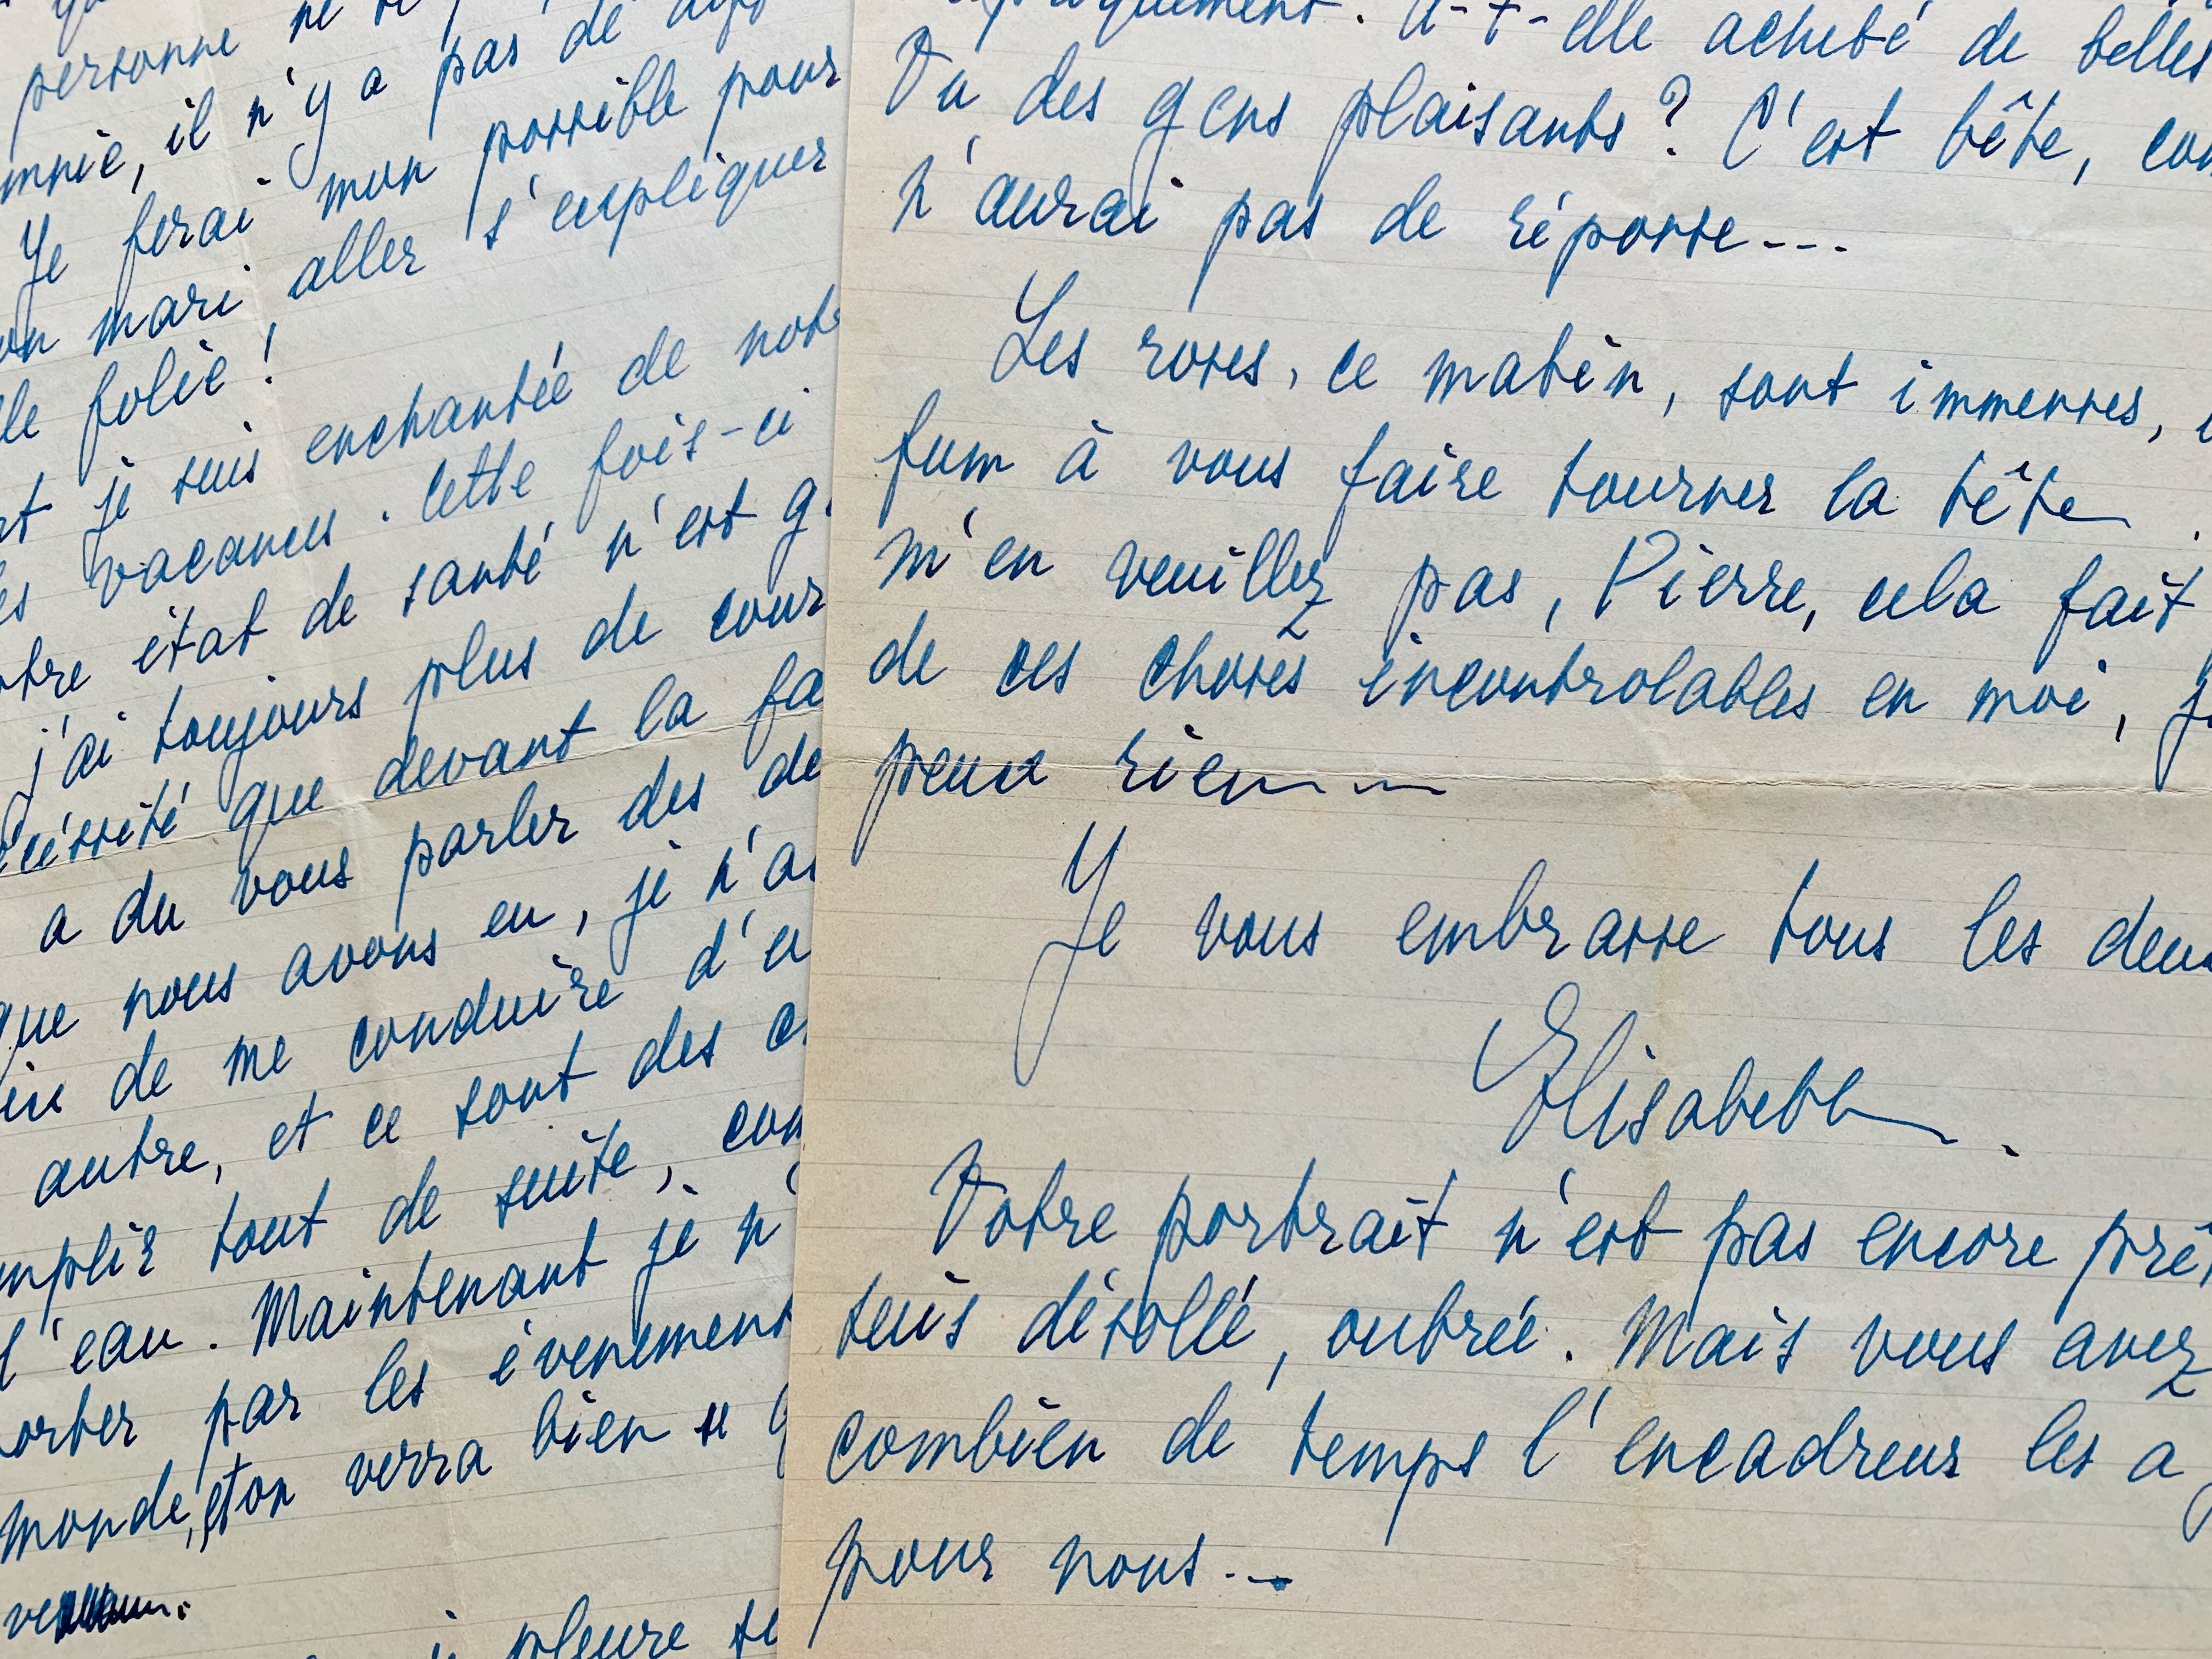 personne ne
il n'y a pas de
Je ferai mon possible pour
mari aller s'expliquer
folie !
je suis enchantée de notr
vacances. Cette fois-ci
état de santé n'est
j'ai toujours plus de cour
que devant la fa
a du vous parler des de
que nous avons eu, je n'a
de me conduire d'u
autre, et ce sont des c
tout de suite, com
l'eau. Maintenant je n'
par les évenement
monde, et on verra bien
pleure
A-t-elle acheté de belles
Vu des gens plaisants ? C'est bête, com
n'aurai pas de réponse...
Les roses, ce matin, sont immenses,
fum à vous faire tourner la tête.
m'en veuillez pas, Pierre, cela fait
de ces choses incontrolables en moi, je
peux rien...
Je vous embrasse tous les deux
Elisabeth.
Votre portrait n'est pas encore prêt
suis désollé, outrée. Mais vous avez
combien de temps l'encadreur les a g
pour nous...